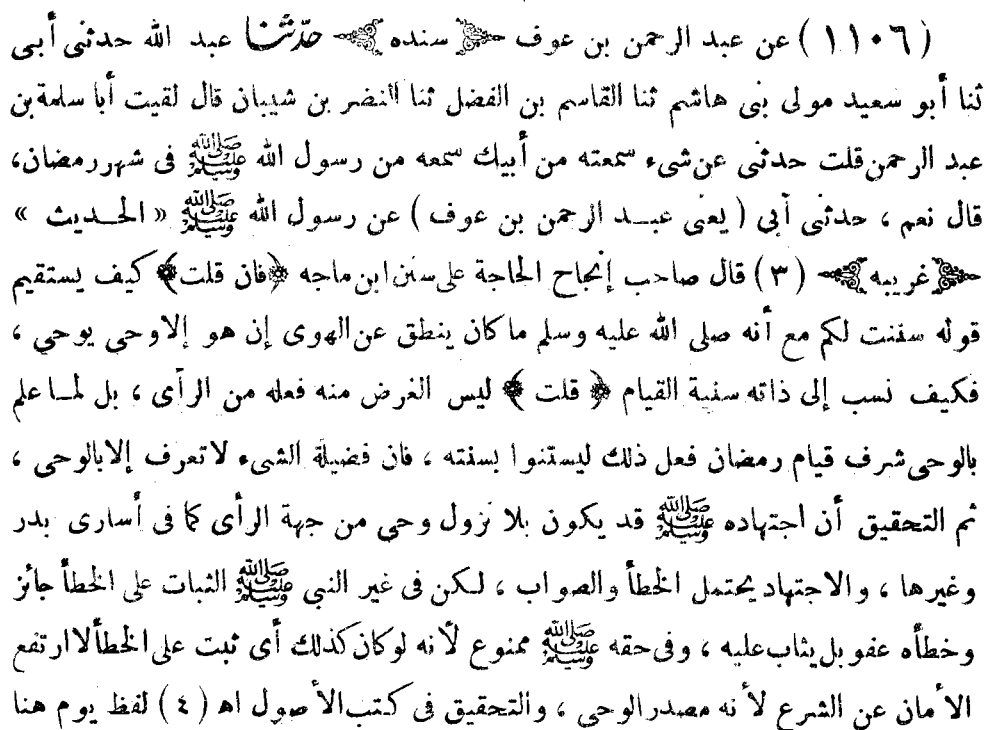 ( ١١٠٦ ) عن عبد الرحمن بن عوف ﴿ سنده ﴾ حدّثنا عبد الله حدثنى أبى
ثنا أبو سعيد مولى بنى هاشم ثنا القاسم بن الفضل ثنا النضر بن شيبان قال لقيت أبا سلمة بن
عبد الرحمن قلت حدثنى عن شىء سمعته من أبيك سمعه من رسول الله ﷺ فى شهر رمضان،
قال نعم ، حدثنى أبى ( يعنى عبد الرحمن بن عوف ) عن رسول الله ﷺ « الحديث »
﴿ غريبه ﴾ ( ٣ ) قال صاحب إنجاح الحاجة على سنن ابن ماجه ﴿ فان قلت ﴾ كيف يستقيم
قوله سننت لكم مع أنه صلى الله عليه وسلم ما كان ينطق عن الهوى إن هو إلا وحى يوحى ،
فكيف نسب إلى ذاته سنية القيام ﴿ قلت ﴾ ليس الغرض منه فعله من الرأى ، بل لما علم
بالوحى شرف قيام رمضان فعل ذلك ليستنوا بسنته ، فان فضيلة الشىء لا تعرف إلا بالوحى ،
ثم التحقيق أن اجتهاده ﷺ قد يكون بلا نزول وحى من جهة الرأى كما فى أسارى بدر
وغيرها ، والاجتهاد يحتمل الخطأ والصواب ، لكن فى غير النبى ﷺ الثبات على الخطأ جائز
وخطأه عفو بل يثاب عليه ، وفى حقه ﷺ ممنوع لأنه لو كان كذلك أى ثبت على الخطأ لا ارتفع
الأمان عن الشرع لأنه مصدر الوحى ، والتحقيق فى كتب الأصول اه ( ٤ ) لفظ يوم هنا